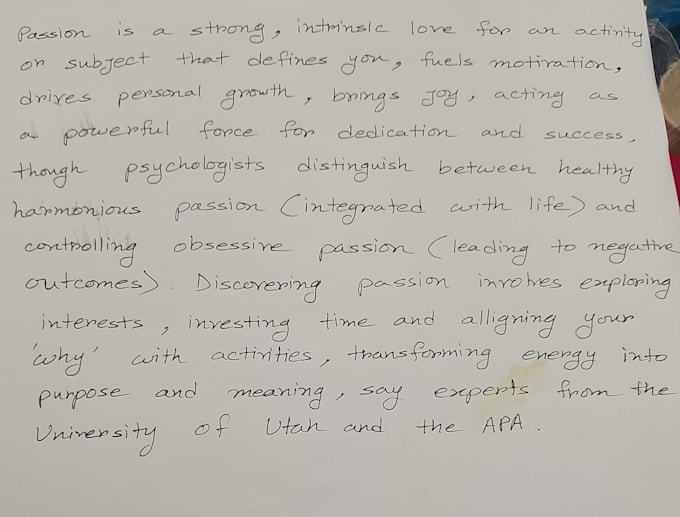 Passion is a strong, intrinsic love for an activity
or subject that defines you, fuels motivation,
drives personal growth, brings joy, acting as
a powerful force for dedication and success,
though psychologists distinguish between healthy
harmonious passion (integrated with life) and
controlling obsessive passion (leading to negative
outcomes). Discovering passion involves exploring
interests, investing time and alligning your
'why' with activities, transforming energy into
purpose and meaning, say experts from the
University of Utah and the APA.